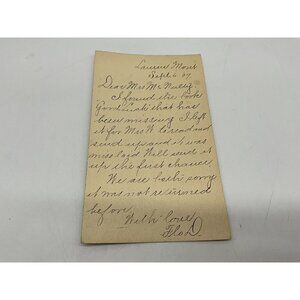 Laurin Mont
Sept 6 07
Dear Mrs McNulty
I found the book
Good Luck that has
been missing I left
it for Mrs W to read and
send up and it was
miss laid Will send it
up the first chance
We are both sorry
it was not returned
before
With love
Flo D.